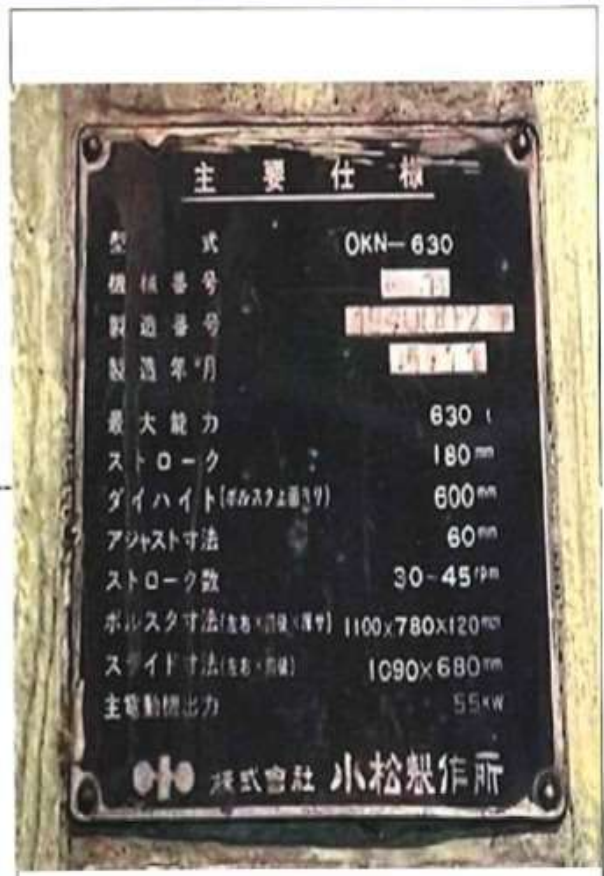 主要仕様
型式 OKN-630
機械番号
製造番号
製造年月
最大能力 630 t
ストローク 180mm
ダイハイト(ボルスタ上面ヨリ) 600mm
アジャスト寸法 60mm
ストローク数 30~45rpm
ボルスタ寸法(左右×前後×厚サ) 1100×780×120mm
スライド寸法(左右×前後) 1090×680mm
主電動機出力 55KW
株式會社 小松製作所